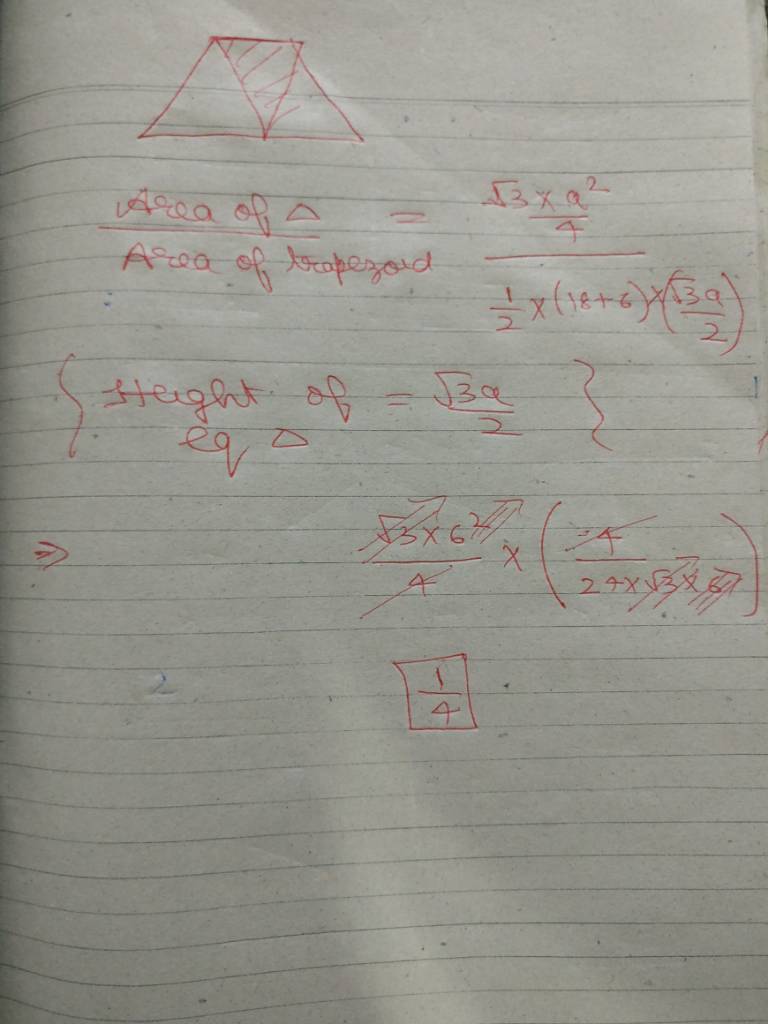 Area of △ / Area of trapezoid = (√3 × a² / 4) / (1/2 × (18+6) × (√3a / 2))
{ Height of eq △ = √3a / 2 }
⇒ √3 × 6² / 4 × ( 4 / 24 × √3 × 6 )
1/4